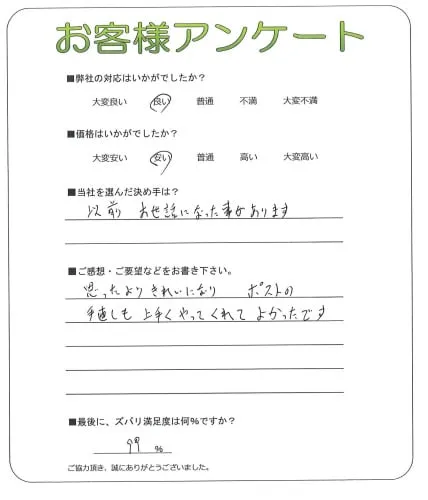 お客様アンケート
■弊社の対応はいかがでしたか？
大変良い 良い 普通 不満 大変不満
■価格はいかがでしたか？
大変安い 安い 普通 高い 大変高い
■当社を選んだ決め手は？
以前 お世話になった事があります
■ご感想・ご要望などをお書き下さい。
思ったよりきれいになり ポストの
手直しも 上手くやってくれて よかったです
■最後に、ズバリ満足度は何%ですか？
99 %
ご協力頂き、誠にありがとうございました。